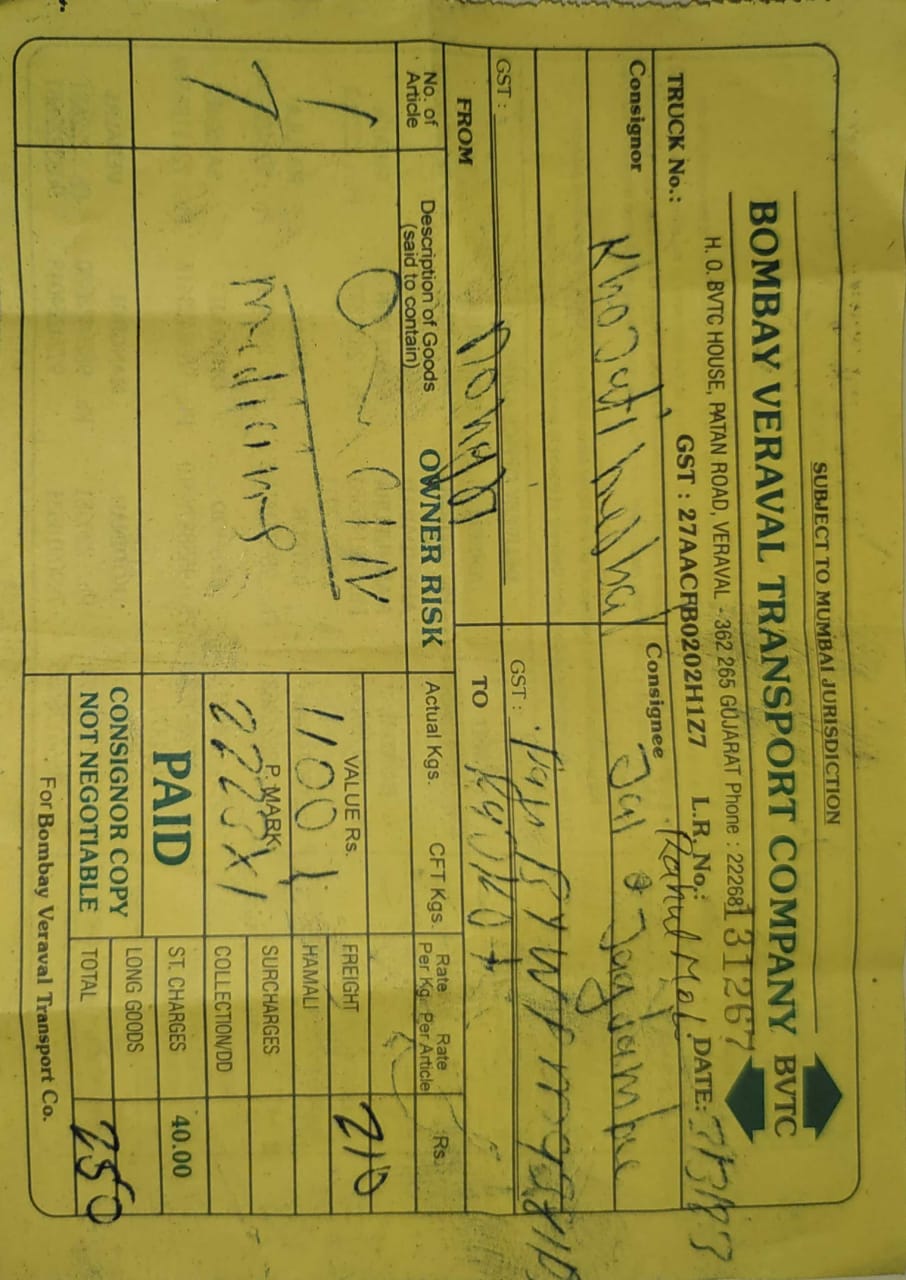 SUBJECT TO MUMBAI JURISDICTION
BOMBAY VERAVAL TRANSPORT COMPANY BVTC
H. O. BVTC HOUSE, PATAN ROAD, VERAVAL - 362 265 GUJARAT Phone : 222681
131267
GST : 27AACFB0202H1Z7 L.R. No.:
TRUCK No.: Rahul DATE:
Consignor Consignee
Jagdambe
GST : GST :
FROM TO
No. of Article Description of Goods (said to contain) OWNER RISK Actual Kgs. CFT Kgs. Rate Per Kg. Rate Per Article Rs.
1
VALUE Rs. FREIGHT 210
1100 HAMALI
P. MARK SURCHARGES
2223X1 COLLECTION/DD
PAID ST. CHARGES 40.00
CONSIGNOR COPY LONG GOODS
NOT NEGOTIABLE TOTAL 250
For Bombay Veraval Transport Co.